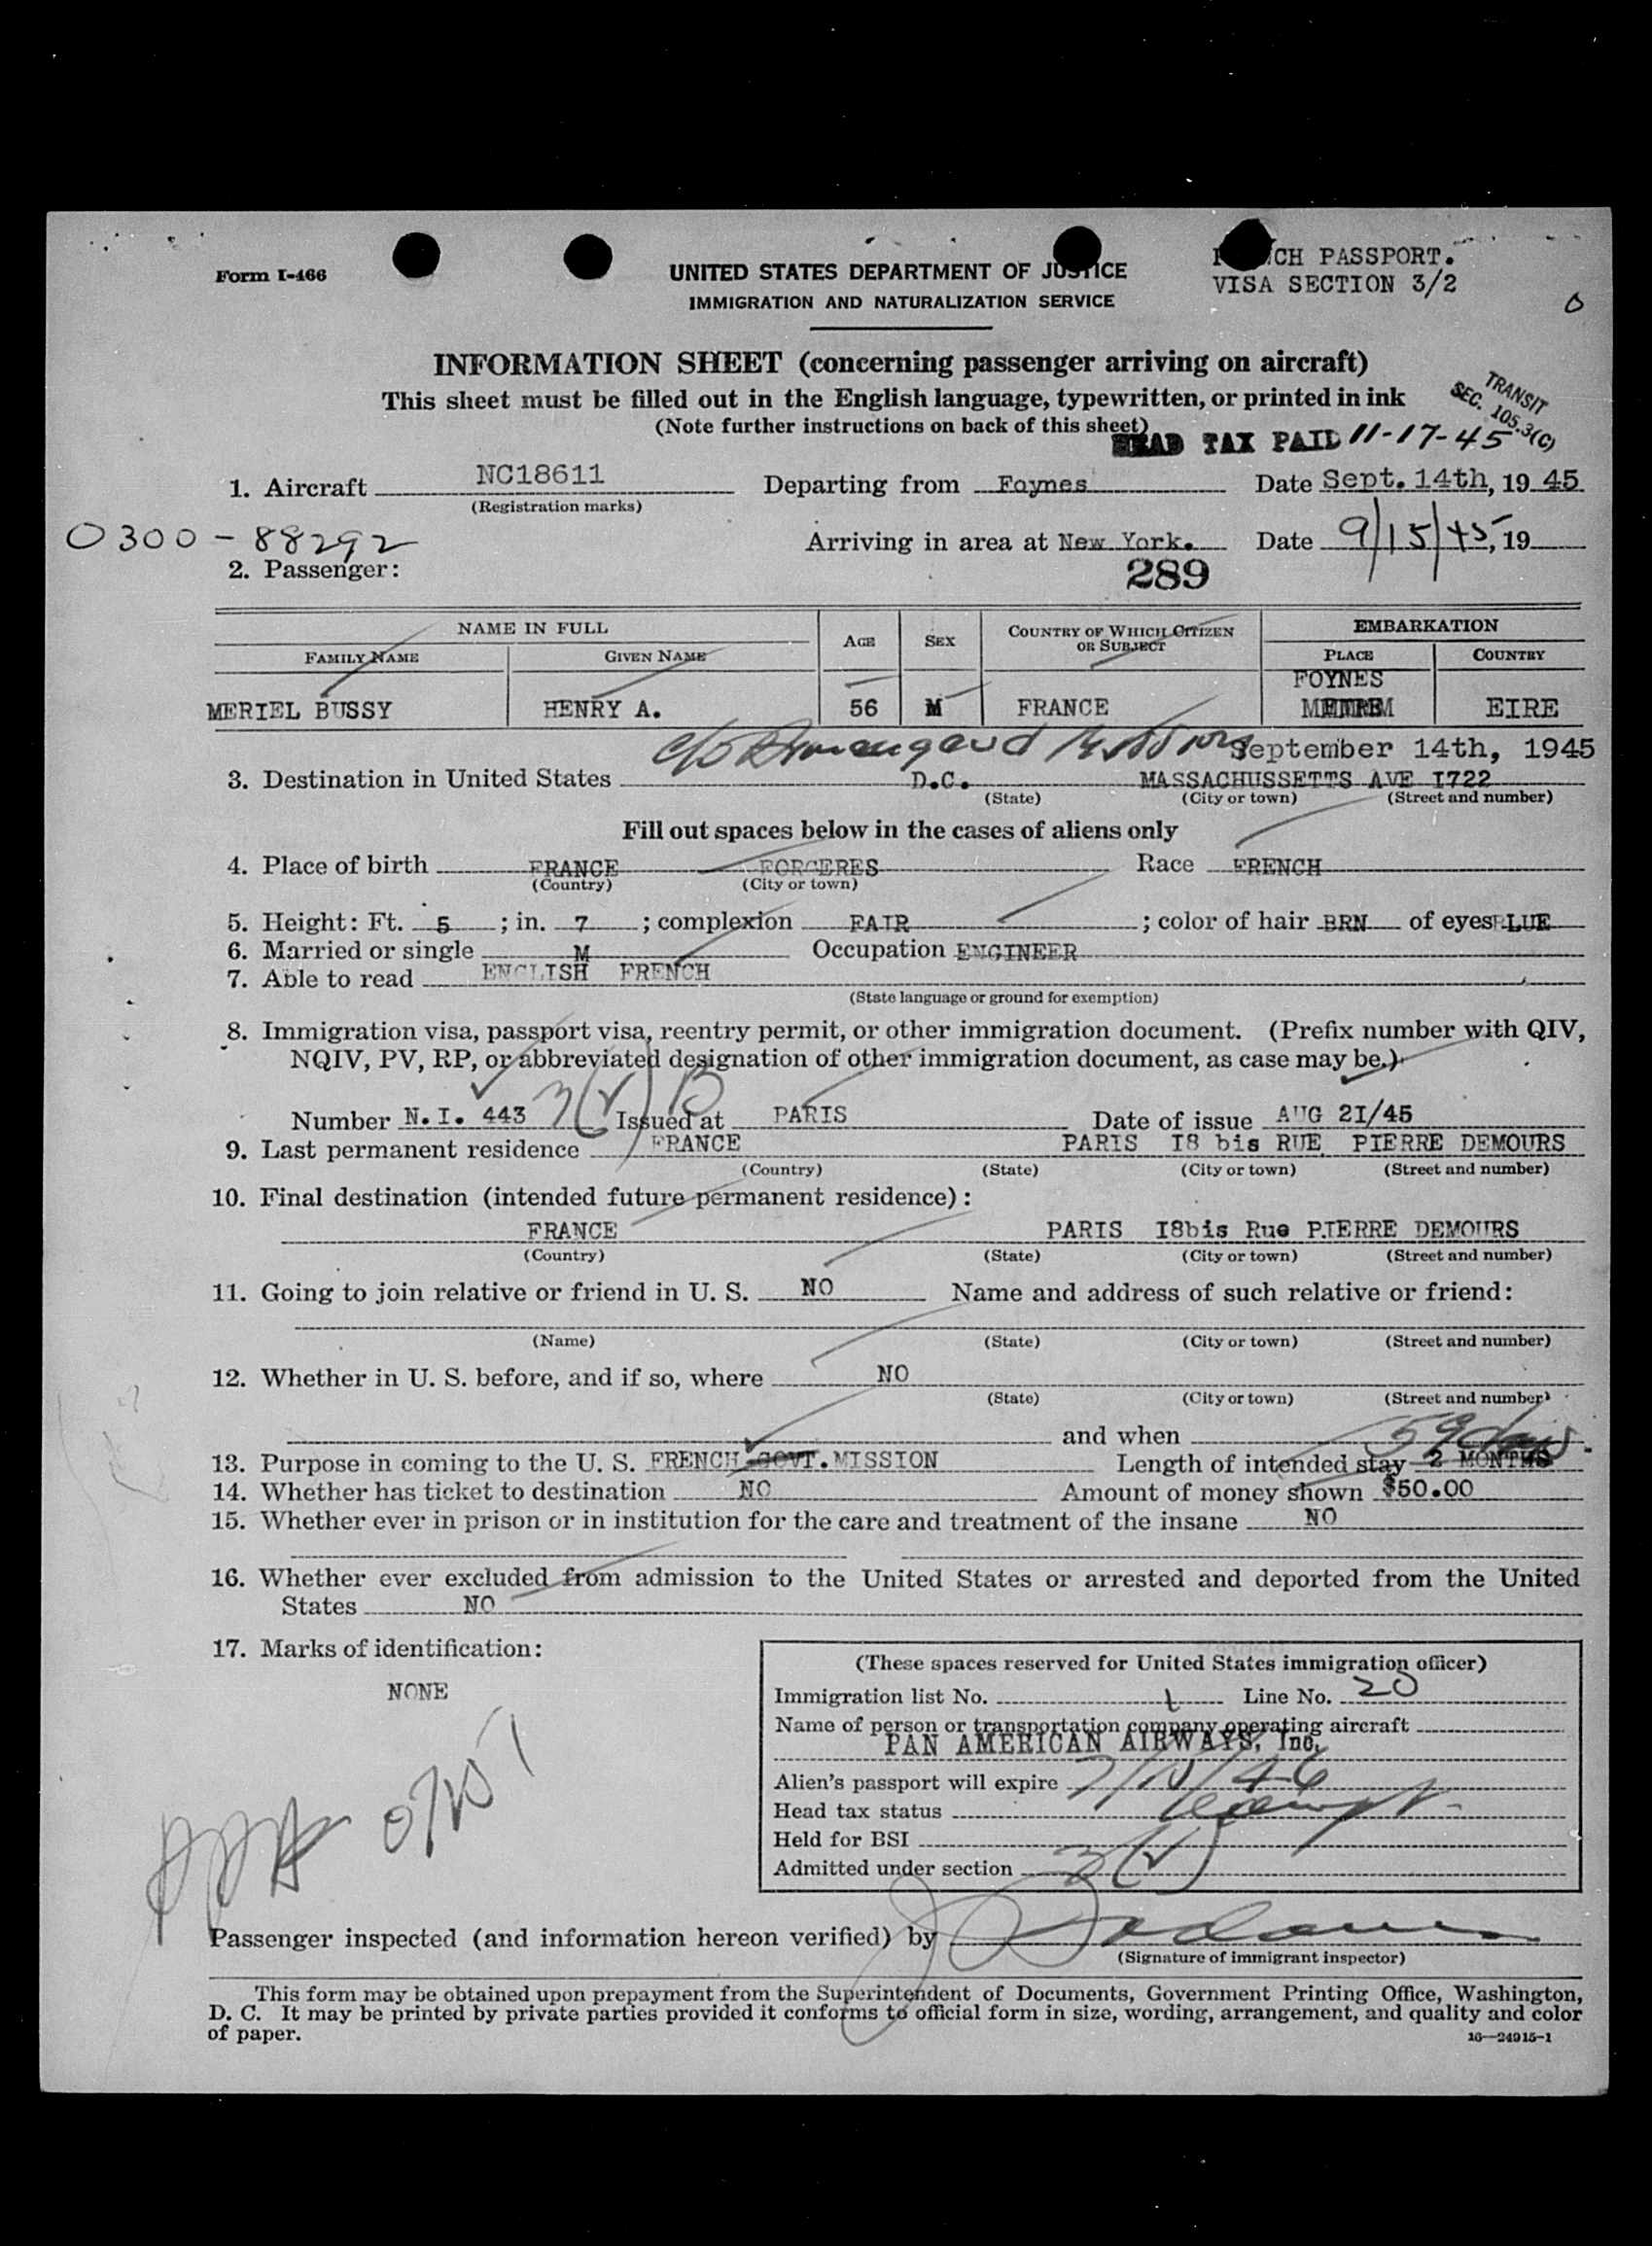 Form I-466
UNITED STATES DEPARTMENT OF JUSTICE
IMMIGRATION AND NATURALIZATION SERVICE
CH PASSPORT.
VISA SECTION 3/2
INFORMATION SHEET (concerning passenger arriving on aircraft)
This sheet must be filled out in the English language, typewritten, or printed in ink
(Note further instructions on back of this sheet)
TRANSIT
SEC. 105.3(C)
HEAD TAX PAID 11-17-45
1. Aircraft NC18611 Departing from Foynes Date Sept. 14th, 19 45
(Registration marks)
0300-88292
Arriving in area at New York. Date 9/15/45, 19
2. Passenger: 289
NAME IN FULL AGE SEX COUNTRY OF WHICH CITIZEN OR SUBJECT EMBARKATION
FAMILY NAME GIVEN NAME PLACE COUNTRY
FOYNES
MERIEL BUSSY HENRY A. 56 M FRANCE EIRE
c/o September 14th, 1945
3. Destination in United States D.C. MASSACHUSSETTS AVE I722
(State) (City or town) (Street and number)
Fill out spaces below in the cases of aliens only
4. Place of birth FRANCE FORCERES Race FRENCH
(Country) (City or town)
5. Height: Ft. 5 ; in. 7 ; complexion FAIR ; color of hair BRN of eyes BLUE
6. Married or single M Occupation ENGINEER
7. Able to read ENGLISH FRENCH
(State language or ground for exemption)
8. Immigration visa, passport visa, reentry permit, or other immigration document. (Prefix number with QIV,
NQIV, PV, RP, or abbreviated designation of other immigration document, as case may be.)
Number N.I. 443 3(2) B Issued at PARIS Date of issue AUG 2I/45
9. Last permanent residence FRANCE PARIS I8 bis RUE PIERRE DEMOURS
(Country) (State) (City or town) (Street and number)
10. Final destination (intended future permanent residence):
FRANCE PARIS I8bis Rue PIERRE DEMOURS
(Country) (State) (City or town) (Street and number)
11. Going to join relative or friend in U. S. NO Name and address of such relative or friend:
(Name) (State) (City or town) (Street and number)
12. Whether in U. S. before, and if so, where NO
(State) (City or town) (Street and number)
and when
59 days.
13. Purpose in coming to the U. S. FRENCH GOVT. MISSION Length of intended stay 2 MONTHS
14. Whether has ticket to destination NO Amount of money shown $50.00
15. Whether ever in prison or in institution for the care and treatment of the insane NO
16. Whether ever excluded from admission to the United States or arrested and deported from the United
States NO
17. Marks of identification:
NONE
(These spaces reserved for United States immigration officer)
Immigration list No. 1 Line No. 20
Name of person or transportation company operating aircraft
PAN AMERICAN AIRWAYS, Inc.
Alien's passport will expire
Head tax status exempt
Held for BSI
Admitted under section 3(2)
Passenger inspected (and information hereon verified) by
(Signature of immigrant inspector)
This form may be obtained upon prepayment from the Superintendent of Documents, Government Printing Office, Washington,
D. C. It may be printed by private parties provided it conforms to official form in size, wording, arrangement, and quality and color
of paper.
16—24915-1